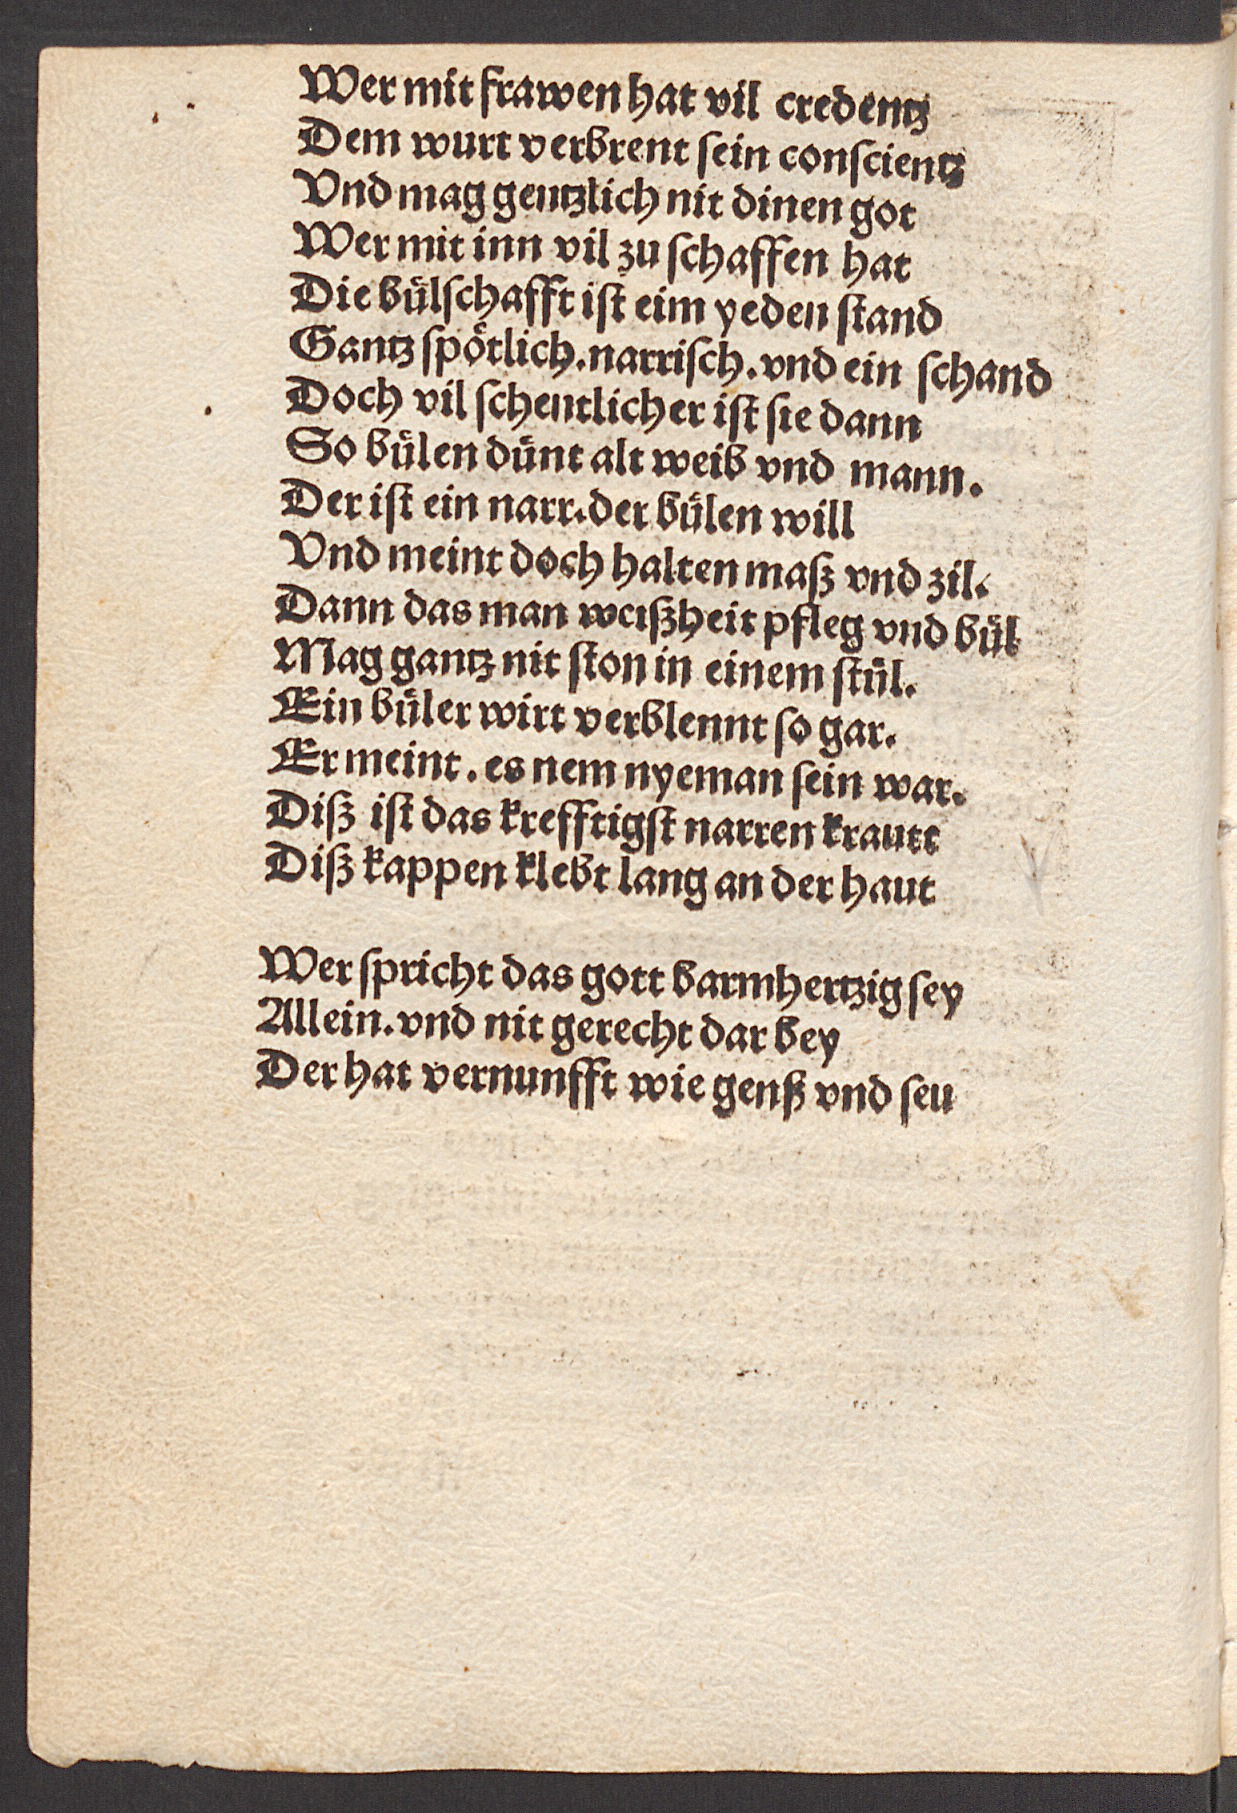 Wer mit frawen hat vil credentz
Dem wurt verbrent sein conscientz
Vnd mag gentzlich nit dinen got
Wer mit inn vil zu schaffen hat
Die bůlschafft ist eim yeden stand
Gantz spoͤtlich. narrisch. vnd ein schand
Doch vil schentlicher ist sie dann
So bůlen důnt alt weib vnd mann.
Der ist ein narr. der bůlen will
Vnd meint doch halten maß vnd zil.
Dann das man weißheit pfleg vnd bůl
Mag gantz nit ston in einem stůl.
Ein bůler wirt verblennt so gar.
Er meint. es nem nyeman sein war.
Diß ist das krefftigst narren krautt
Diß kappen klebt lang an der haut
Wer spricht das gott barmhertzig sey
Allein. vnd nit gerecht dar bey
Der hat vernunfft wie genß vnd seu